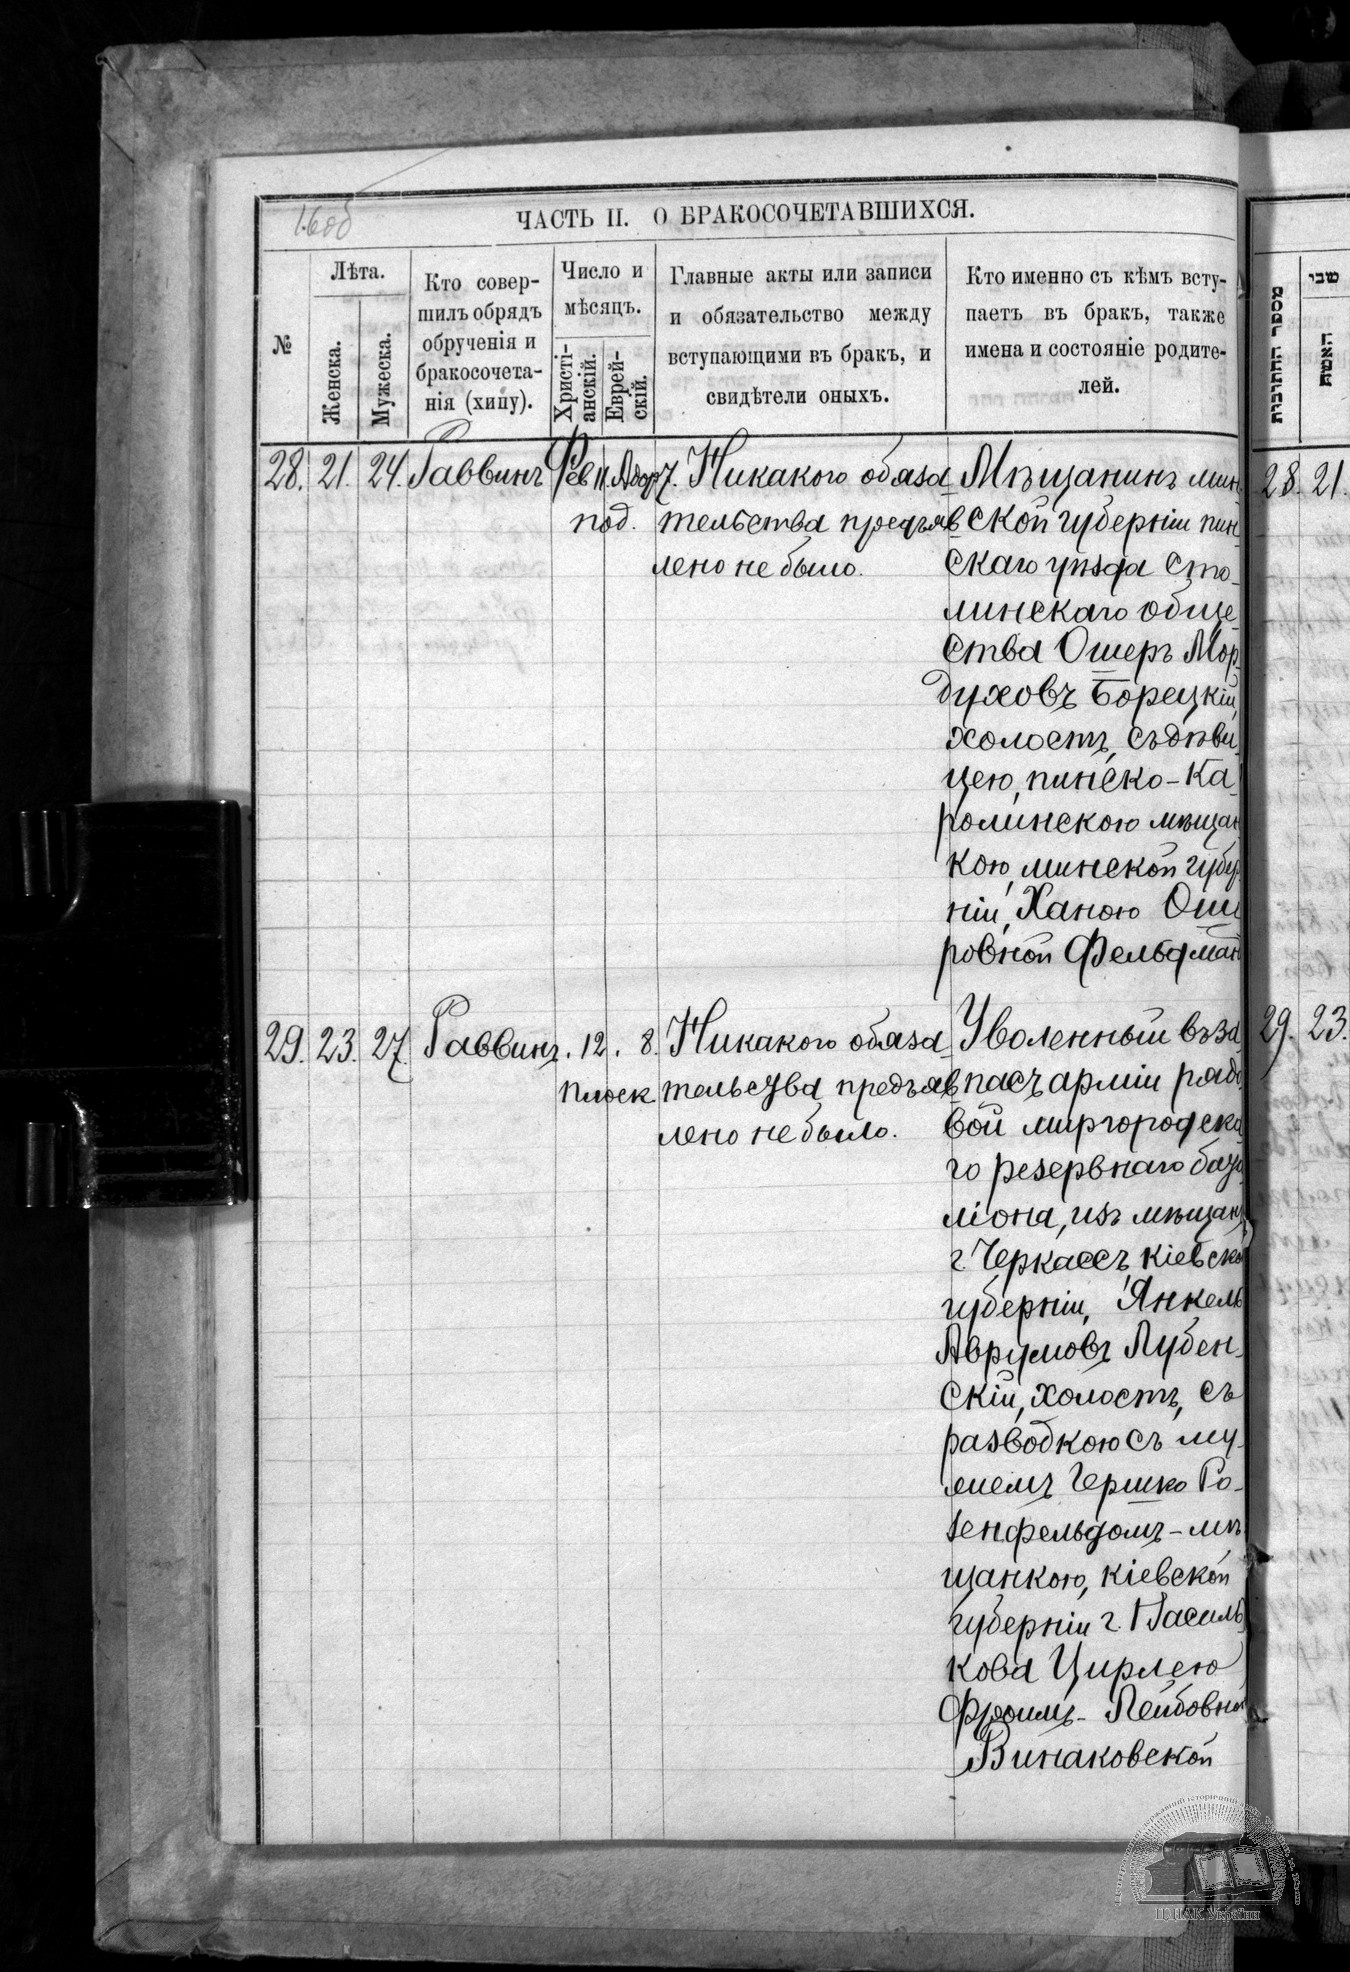 16об
ЧАСТЬ II. О БРАКОСОЧЕТАВШИХСЯ.
№
Лѣта.
Женска.
Мужеска.
Кто совер-
шилъ обрядъ
обрученія и
бракосочета-
нія (хипу).
Число и
мѣсяцъ.
Христі-
анскій.
Еврей-
скій.
Главные акты или записи
и обязательство между
вступающими въ бракъ, и
свидѣтели оныхъ.
Кто именно съ кѣмъ всту-
паетъ въ бракъ, также
имена и состояніе родите-
лей.
28. 21. 24. Раввинъ Фев 11. Адар 7.
под.
Никакого обяза-
тельства предъяв-
лено не было.
Мѣщанинъ мин-
ской губерніи пин-
скаго уѣзда Сто-
линскаго обще-
ства Ошеръ Мор-
духовъ Борецкій,
холостъ, съ дѣви-
цею, пинско-Ка-
ролинскою мѣщан-
кою, минской губер-
ніи, Ханою Оше
ровной Фельдман
29. 23. 27. Раввинъ. 12. 8.
Плоск
Никакого обяза-
тельства предъяв-
лено не было.
Уволенный въ за-
пасъ арміи рядо-
вой миргородска
го резервнаго бата
ліона, изъ мѣщан
г. Черкассъ, кіевской
губерніи, Янкель
Аврумовъ Лубен-
скій, холостъ, съ
разводкою съ му-
жемъ Гершко Ро-
зенфельдомъ - мѣ
щанкою, кіевской
губерніи г. Василь
кова Цирлею
Фроимъ-Лейбовной
Винаковской
מספר החתונות
שני
האשה
28. 21.
29. 23.
ЦДІАК України